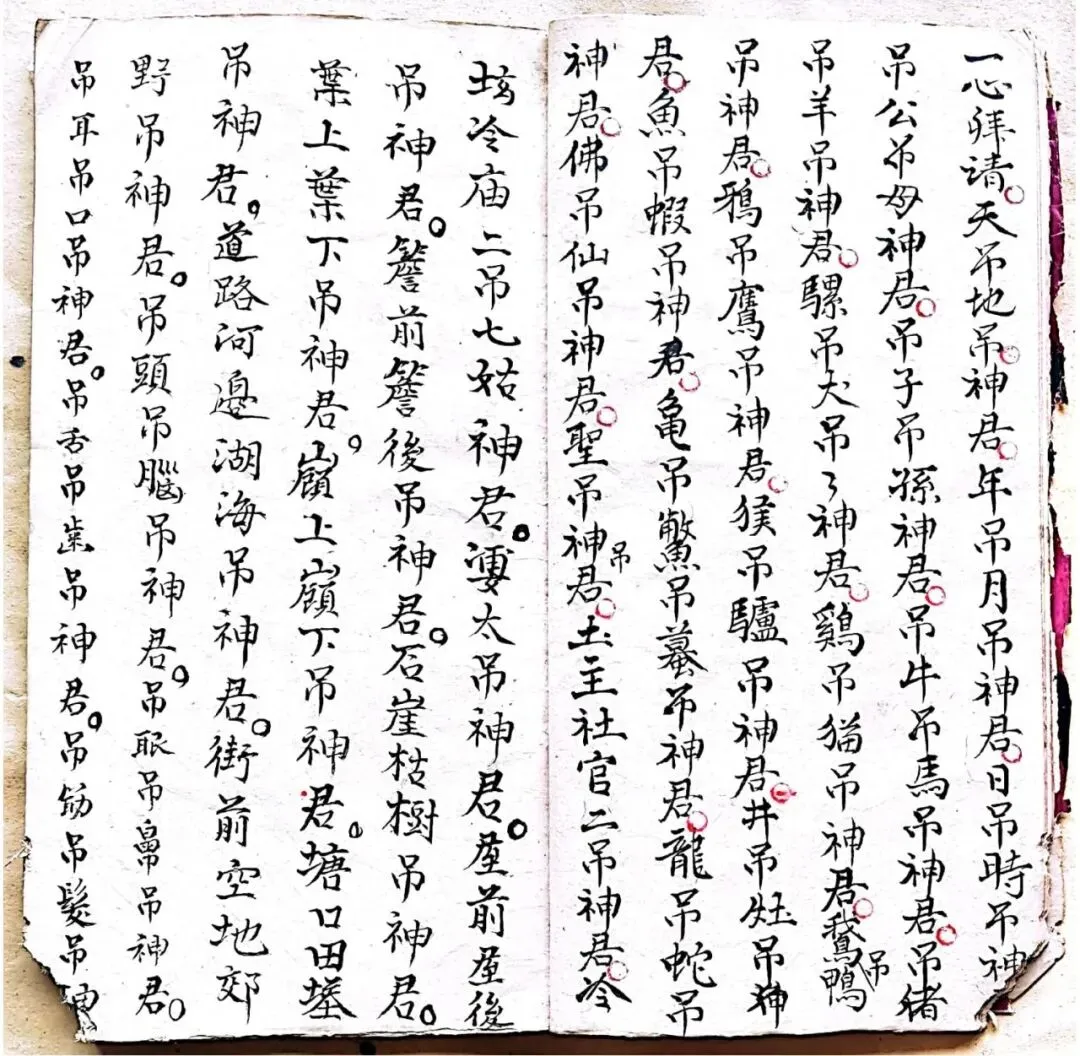 一心拜请。天吊地吊。神君。年吊月吊神君。日吊時吊神
吊公吊母神君。吊子吊孫神君。吊牛吊馬吊神君。吊猪
吊羊吊神君。騾吊犬吊々神君。鷄吊猫吊神君。鵝吊鴨
吊神君。鴉吊鷹吊神君。猴吊驢吊神君。井吊灶吊神
君。魚吊蝦吊神君。亀吊鱉吊蠶吊神君。龍吊蛇吊
神君。佛吊仙吊神君。聖吊神吊君。土主社官二吊神君。冷
坛冷庙二吊七姑神君。雯太吊神君。座前座後
吊神君。簷前簷後吊神君。石崖枯樹吊神君。
葉上葉下吊神君。嶺上嶺下吊神君。塘口田基
吊神君。道路河邊湖海吊神君。街前空地郊
野吊神君。吊頭吊腦吊神君。吊眼吊鼻吊神君。
吊耳吊口吊神君。吊舌吊歯吊神君。吊筋吊髮吊神